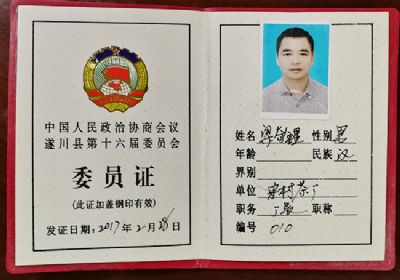 中国人民政治协商会议
遂川县第十六届委员会
委员证
(此证加盖钢印有效)
发证日期：2017年2月28日
姓名 性别 男
年龄 民族 汉
界别
单位 茶厂
职务 厂长 职称
编号 010